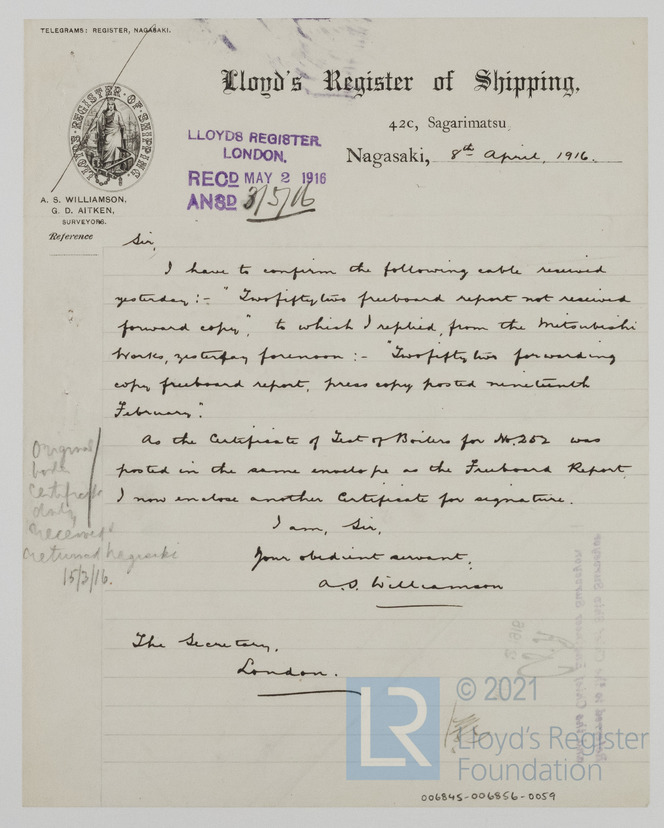 TELEGRAMS: REGISTER, NAGASAKI.
Lloyd's Register of Shipping,
42c, Sagarimatsu
Nagasaki, 8th April, 1916.
LLOYD'S REGISTER OF SHIPPING
LLOYDS REGISTER
LONDON.
RECD MAY 2 1916
ANSD 3/5/16
A. S. WILLIAMSON,
G. D. AITKEN,
SURVEYORS.
Reference
Sir,
I have to confirm the following cable received
yesterday:- "Twofiftytwo freeboard report not received
forward copy", to which I replied, from the Mitsubishi
Works, yesterday forenoon:- "Twofiftytwo forwarding
copy freeboard report, press copy posted nineteenth
February".
As the Certificate of Test of Boilers for No. 252 was
posted in the same envelope as the Freeboard Report,
I now enclose another Certificate for signature.
I am, Sir,
Your obedient servant,
A.S. Williamson
Original
boiler
certificate
duly
received &
returned Nagasaki
15/3/16.
The Secretary,
London.
LR
© 2021
Lloyd's Register
Foundation
006845-006856-0059